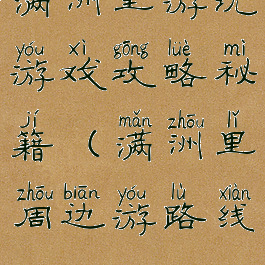 满洲里游玩
yóu xì gōng lüè mì
游戏攻略秘
jí mǎn zhōu lǐ
籍（满洲里
zhōu biān yóu lù xiàn
周边游路线